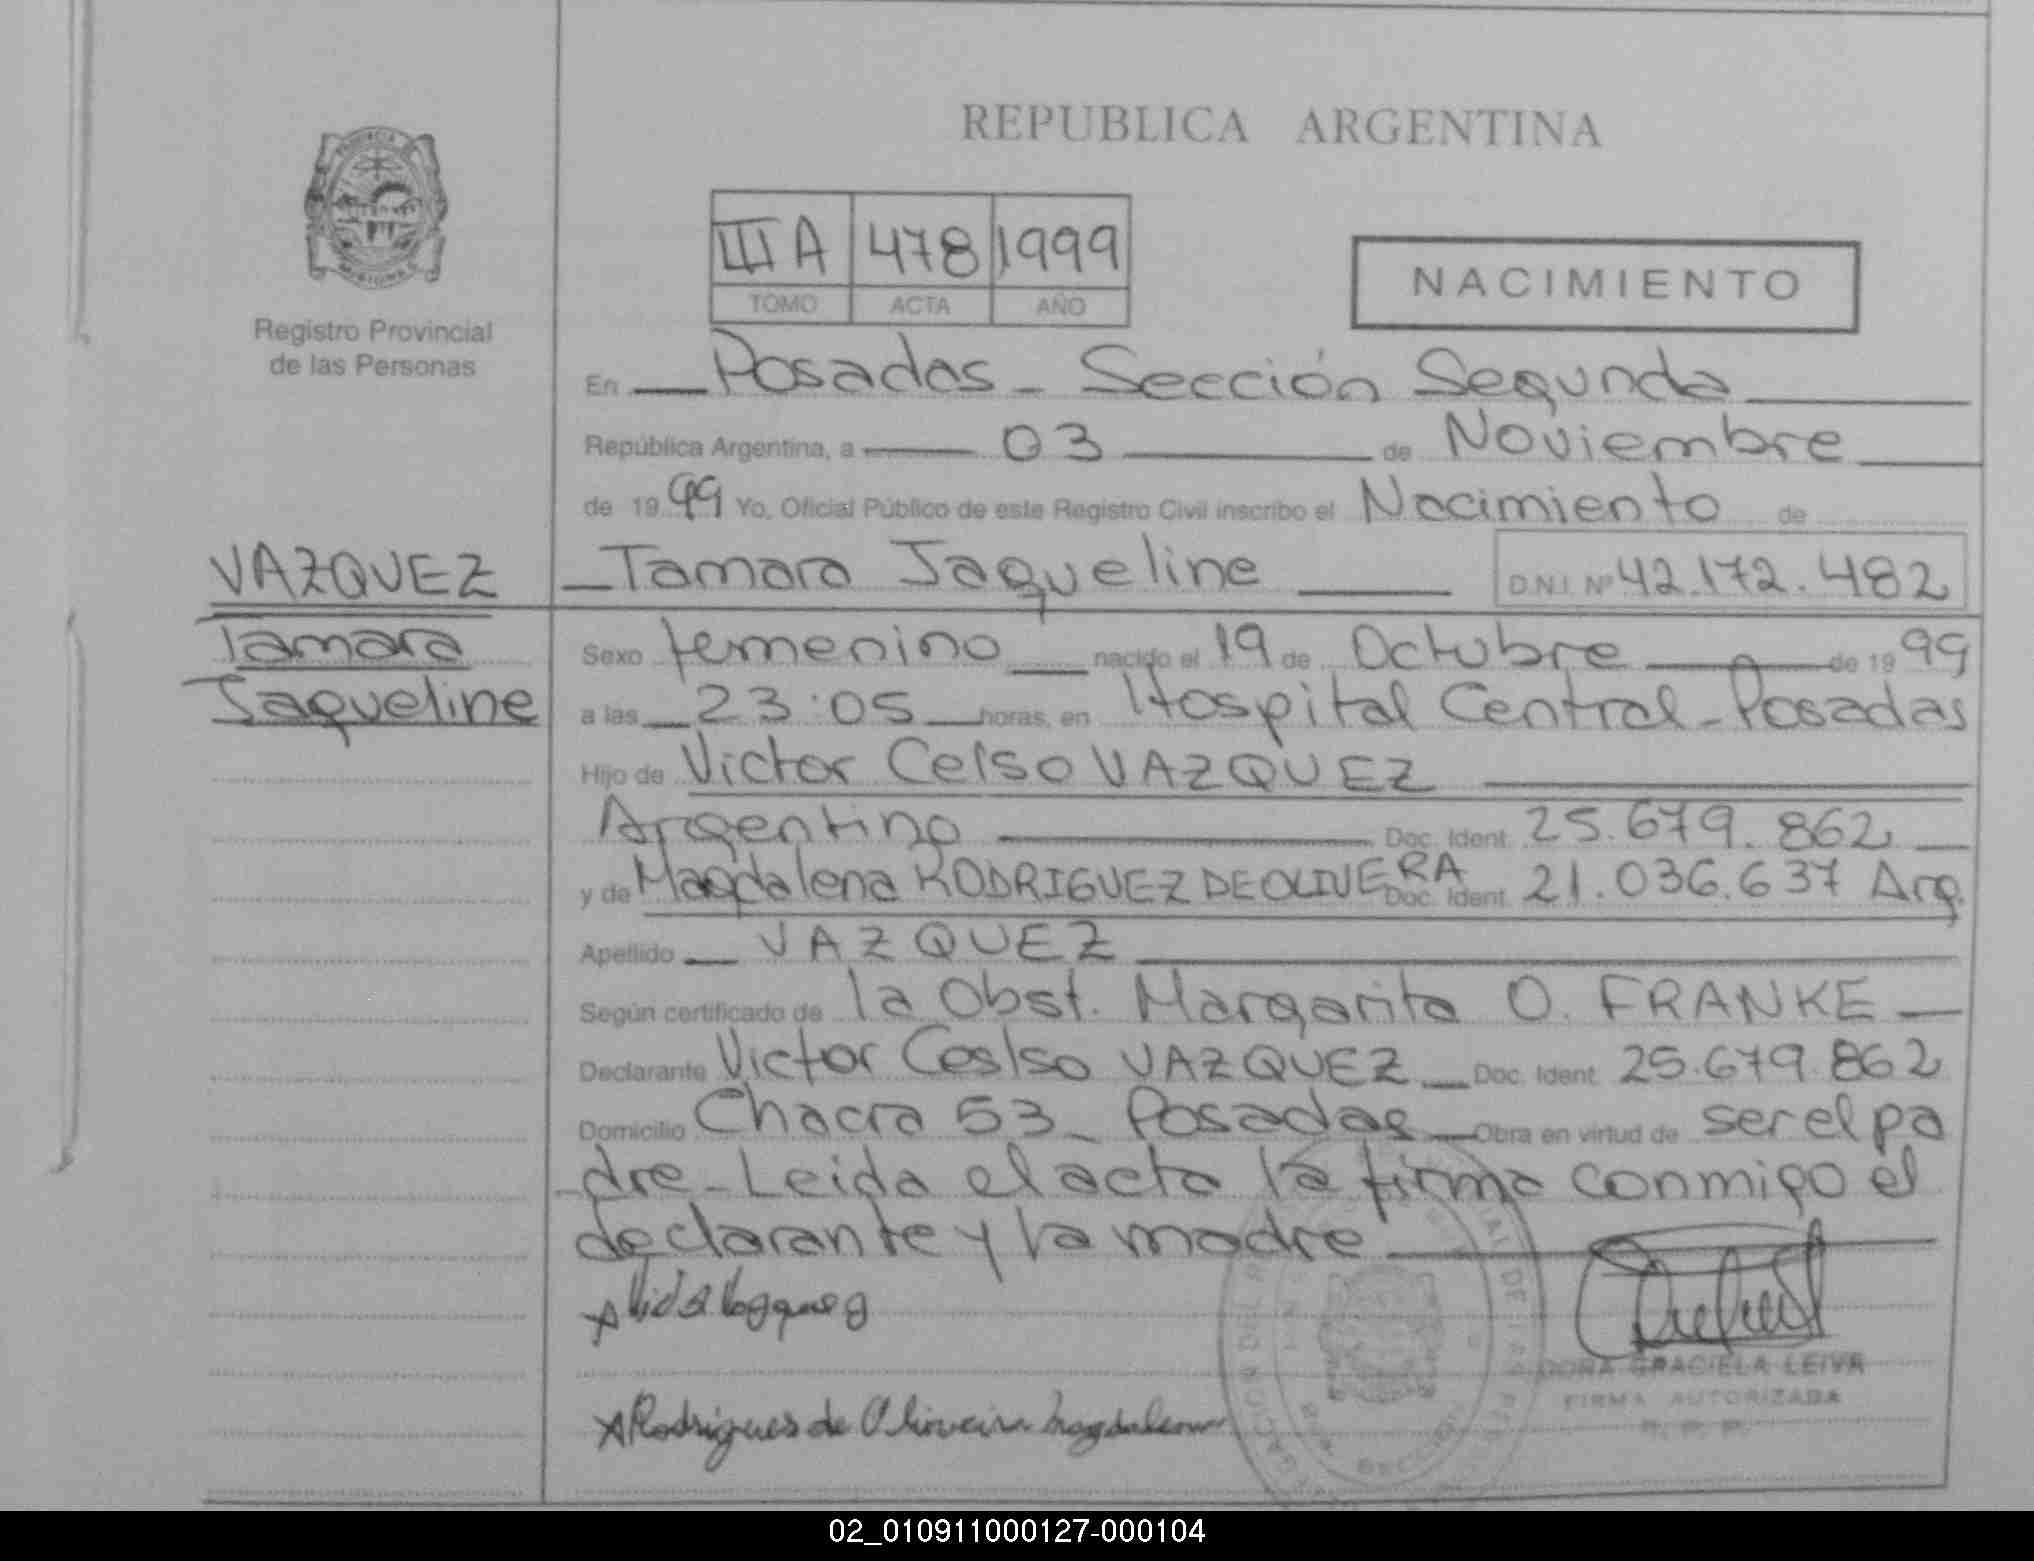 REPUBLICA ARGENTINA
III A 478 1999
TOMO ACTA AÑO
NACIMIENTO
Registro Provincial
de las Personas
En Posadas - Sección Segunda
República Argentina, a 03 de Noviembre
de 19 99 Yo, Oficial Público de este Registro Civil inscribo el Nacimiento de
VAZQUEZ
Tamara Jaqueline D.N.I. Nº 42.172.482
Tamara
Jaqueline
Sexo femenino nacido el 19 de Octubre de 19 99
a las 23:05 horas, en Hospital Central - Posadas
Hijo de Victor Celso VAZQUEZ
Argentino Doc. Ident. 25.679.862
y de Magdalena RODRIGUEZ DE OLIVERA Doc. Ident. 21.036.637 Arg.
Apellido VAZQUEZ
Según certificado de la Obst. Margarita O. FRANKE
Declarante Victor Ceslso VAZQUEZ Doc. Ident. 25.679.862
Domicilio Chacra 53 - Posadas Obra en virtud de ser el pa
dre - Leida el acta la firma conmigo el
declarante y la madre
Rodrigues de Oliveira Magdalena
DORA GRACIELA LEIVA
FIRMA AUTORIZADA
R. P. P.
02_010911000127-000104